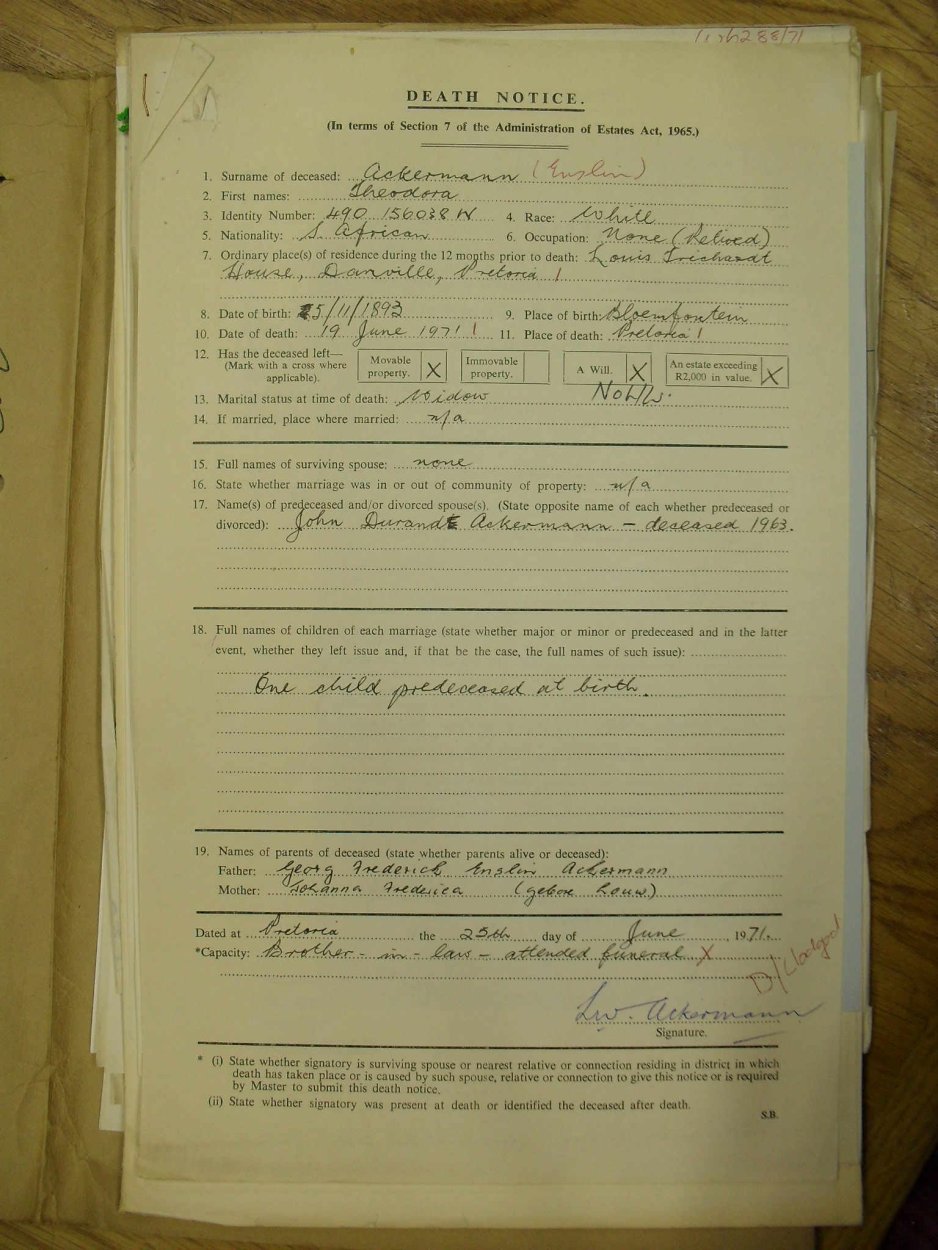 288/71
DEATH NOTICE.
(In terms of Section 7 of the Administration of Estates Act, 1965.)
1. Surname of deceased: Ackermann (Enslin)
2. First names: Theodora
3. Identity Number: 490 156038 W 4. Race: White
5. Nationality: S. African 6. Occupation: None (Retired)
7. Ordinary place(s) of residence during the 12 months prior to death: Louis Trichardt
House, Danville, Pretoria
8. Date of birth: 25/11/1893 9. Place of birth: Bloemfontein
10. Date of death: 19 June 1971 11. Place of death: Pretoria
12. Has the deceased left—
(Mark with a cross where
applicable).
Movable
property. X
Immovable
property.
A Will. X
An estate exceeding
R2,000 in value. X
13. Marital status at time of death: Widow
14. If married, place where married: n/a
15. Full names of surviving spouse: none
16. State whether marriage was in or out of community of property: n/a
17. Name(s) of predeceased and/or divorced spouse(s). (State opposite name of each whether predeceased or
divorced): John Durandt Ackermann – deceased 1963.
18. Full names of children of each marriage (state whether major or minor or predeceased and in the latter
event, whether they left issue and, if that be the case, the full names of such issue):
One child predeceased at birth.
19. Names of parents of deceased (state whether parents alive or deceased):
Father: Georg Frederick Enslin Ackermann
Mother: Johanna Frederica (gebore Louw)
Dated at Pretoria the 25th day of June, 1971.
*Capacity: Brother-in-law – attended funeral X
Ackermann
Signature.
* (i) State whether signatory is surviving spouse or nearest relative or connection residing in district in which
death has taken place or is caused by such spouse, relative or connection to give this notice or is required
by Master to submit this death notice.
(ii) State whether signatory was present at death or identified the deceased after death.
S.B.